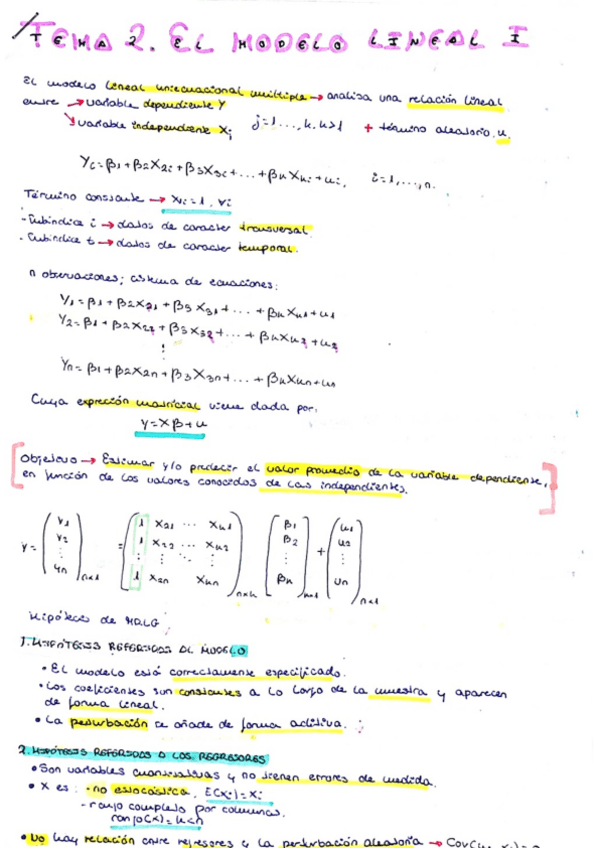 TEMA 2. EL MODELO LINEAL I
El modelo lineal uniecuacional múltiple → analisa una relación lineal
entre → variable dependiente Y
↘ variable independiente Xj j=1...,k, k>1 + término aleatorio, u.
Yi = β1 + β2X2i + β3X3i + ... + βkXki + ui, i=1,...,n.
Término constante → X1i = 1, ∀i
- Subíndice i → datos de caracter transversal.
- Subíndice t → datos de caracter temporal.
n observaciones; sistema de ecuaciones:
Y1 = β1 + β2X21 + β3X31 + ... + βkXk1 + u1
Y2 = β1 + β2X22 + β3X32 + ... + βkXk2 + u2
⋮
Yn = β1 + β2X2n + β3X3n + ... + βkXkn + un
Cuya expreción matricial viene dada por:
y = Xβ + u
[Objetivo → Estimar y/o predecir el valor promedio de la variable dependiente,
en función de los valores conocidos de las independientes.]
Y1 1 X21 ... Xk1 β1 u1
Y2 1 X22 ... Xk2 β2 u2
Y = ⋮ = ⋮ ⋮ ⋱ ⋮ ⋮ + ⋮
Yn n×1 1 X2n Xkn n×k βk k×1 un n×1
Hipótesis de MRLG:
1. HIPÓTESIS REFERIDAS AL MODELO
• El modelo está correctamente especificado.
• Los coeficientes son constantes a lo largo de la muestra y aparecen
de forma lineal.
• La perturbación se añade de forma aditiva.
2. HIPÓTESIS REFERIDAS A LOS REGRESORES
• Son variables cuantitativas y no tienen errores de medida.
• X es: - no estocástica. E(Xi) = Xi
- rango completo por columnas.
rango(X) = k < n
• No hay relación entre regresores y la perturbación aleatoria → Cov(